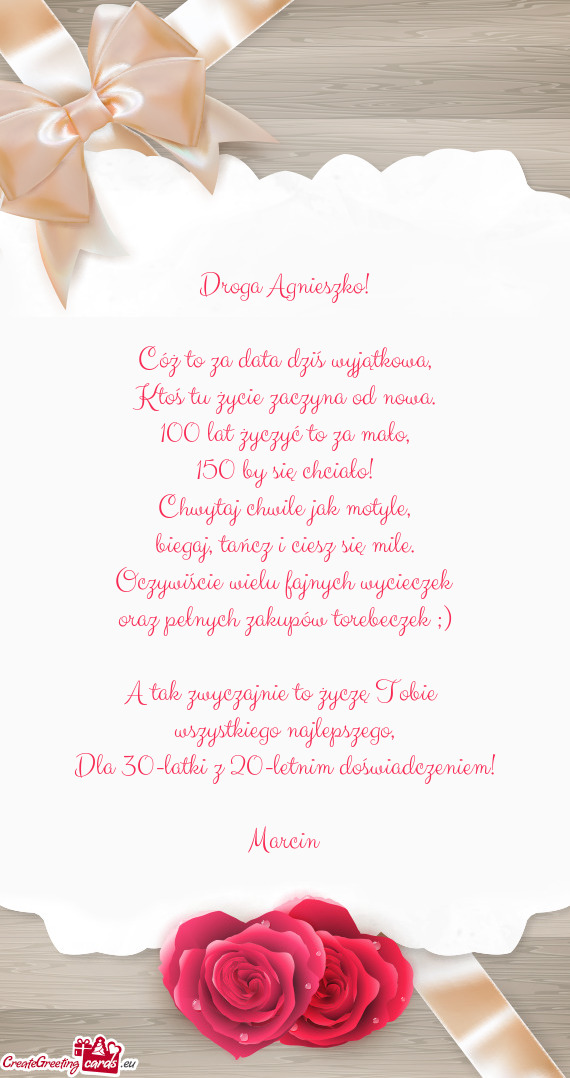 Droga Agnieszko!
Cóż to za data dziś wyjątkowa,
Ktoś tu życie zaczyna od nowa.
100 lat życzyć to za mało,
150 by się chciało!
Chwytaj chwile jak motyle,
biegaj, tańcz i ciesz się mile.
Oczywiście wielu fajnych wycieczek
oraz pełnych zakupów torebeczek ;)
A tak zwyczajnie to życzę Tobie
wszystkiego najlepszego,
Dla 30-latki z 20-letnim doświadczeniem!
Marcin
CreateGreeting cards .eu